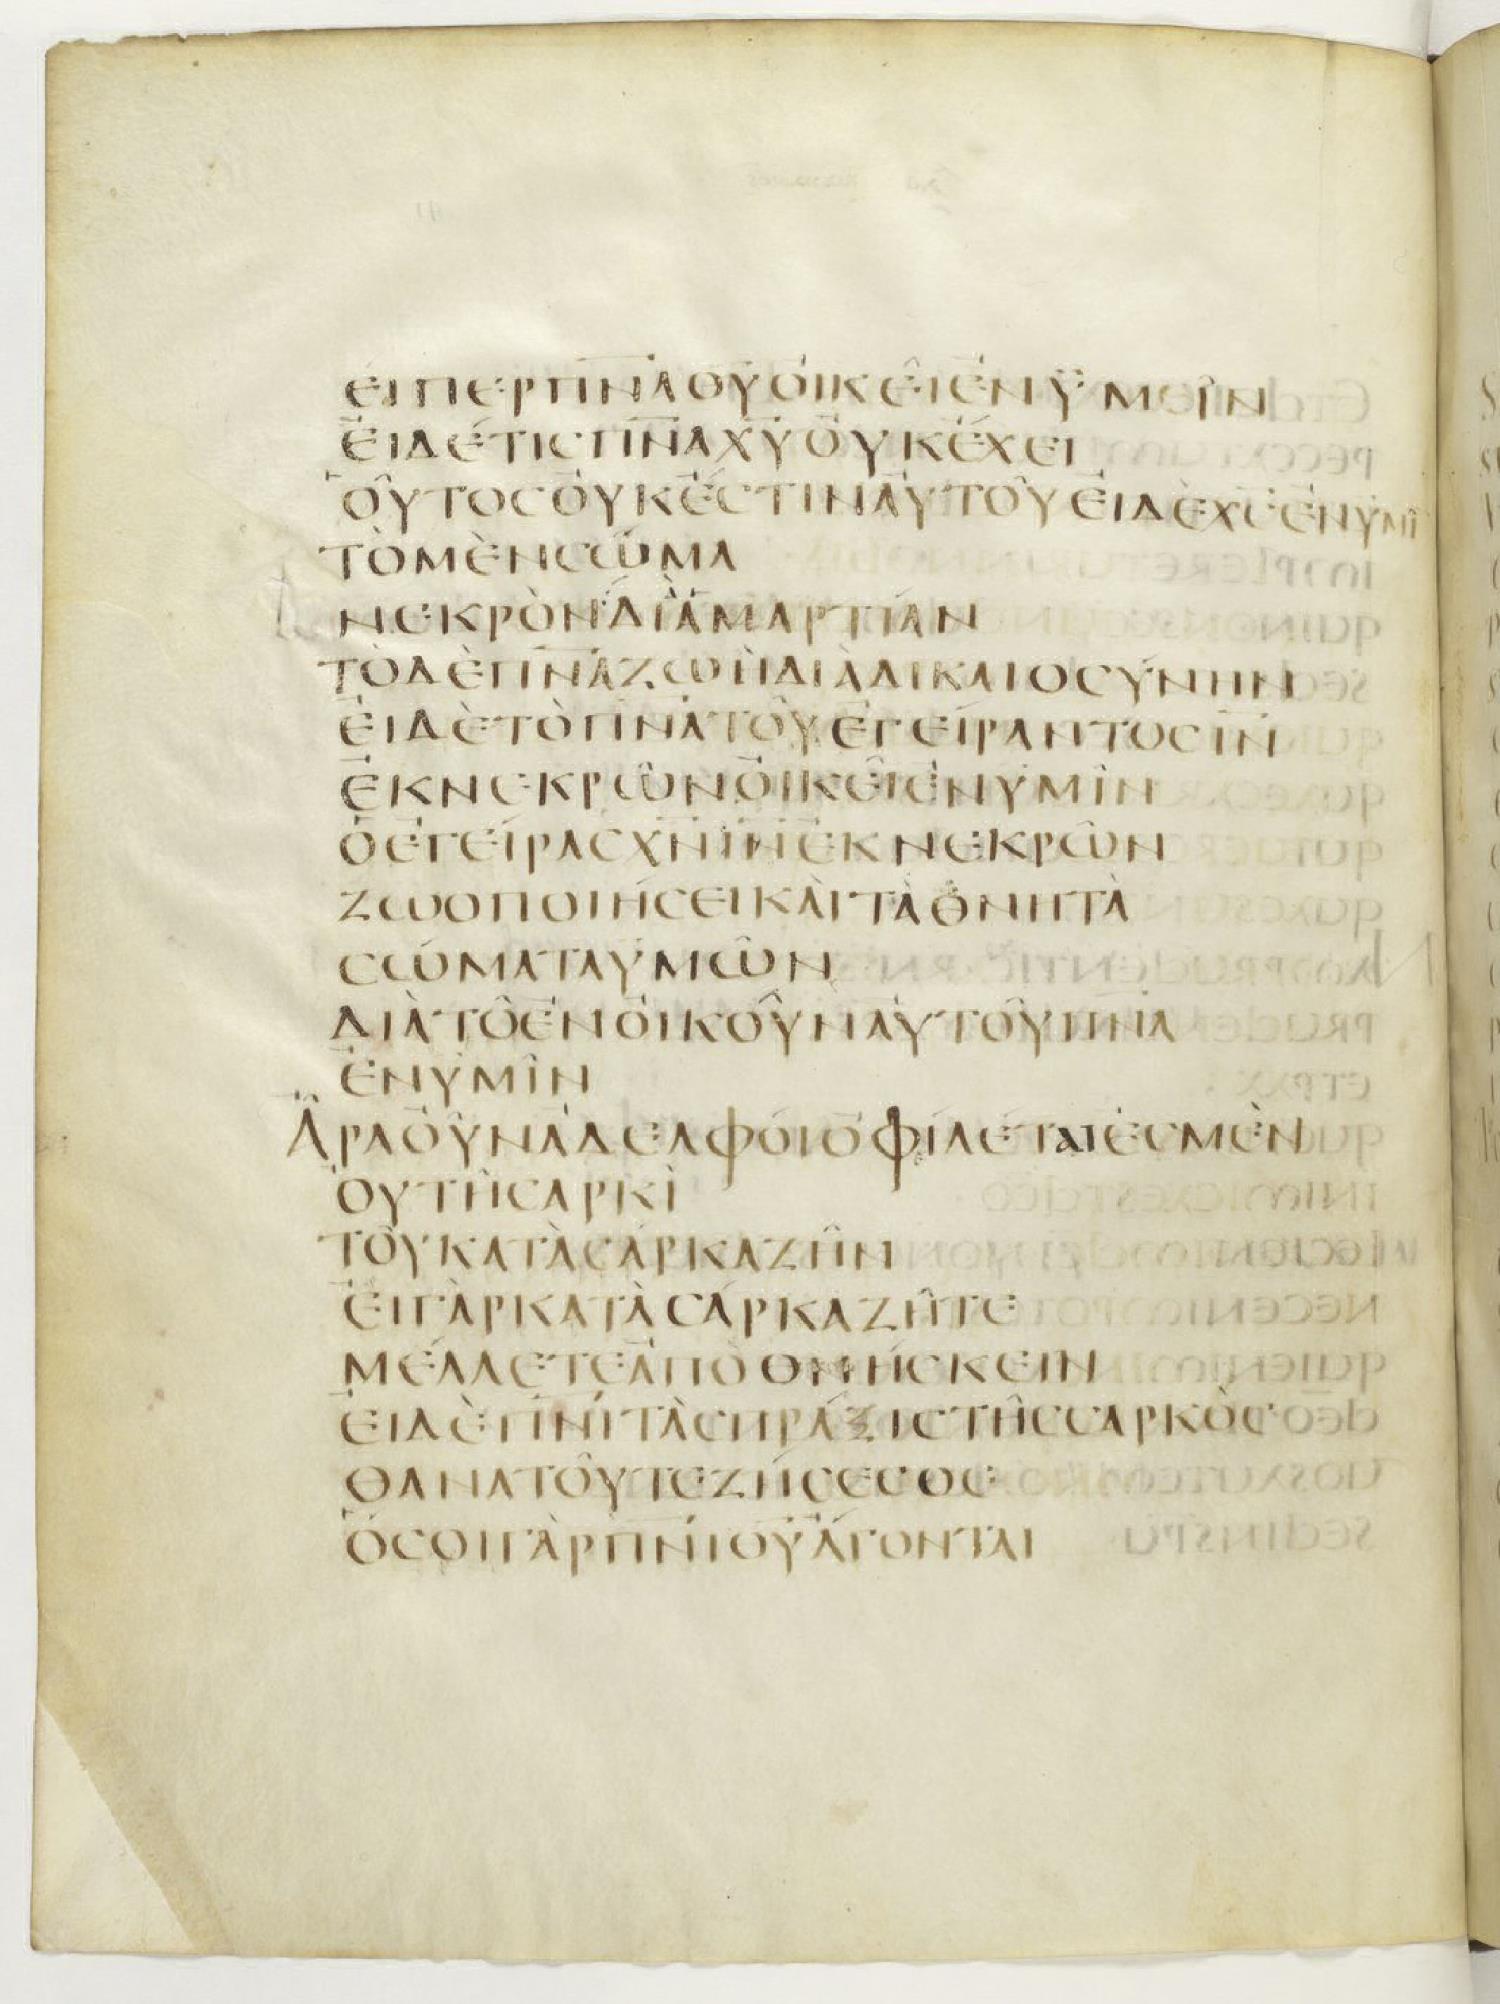 ΕΙΠΕΡΠΝΑΘΥΟΙΚΕΙΕΝΥΜΕΙΝ
ΕΙΔΕΤΙΣΠΝΑΧΥΟΥΚΕΧΕΙ
ΟΥΤΟΣΟΥΚΕΣΤΙΝΑΥΤΟΥΕΙΔΕΧΣΕΝΥΜΙ
ΤΟΜΕΝΣΩΜΑ
ΝΕΚΡΟΝΔΙΑΜΑΡΤΙΑΝ
ΤΟΔΕΠΝΑΖΩΗΔΙΑΔΙΚΑΙΟΣΥΝΗΝ
ΕΙΔΕΤΟΠΝΑΤΟΥΕΓΕΙΡΑΝΤΟΣΙΝ
ΕΚΝΕΚΡΩΝΟΙΚΕΙΕΝΥΜΙΝ
ΟΕΓΕΙΡΑΣΧΝΙΝΕΚΝΕΚΡΩΝ
ΖΩΟΠΟΙΗΣΕΙΚΑΙΤΑΘΝΗΤΑ
ΣΩΜΑΤΑΥΜΩΝ
ΔΙΑΤΟΕΝΟΙΚΟΥΝΑΥΤΟΥΠΝΑ
ΕΝΥΜΙΝ
ΑΡΑΟΥΝΑΔΕΛΦΟΙΟΦΙΛΕΤΑΙΕΣΜΕΝ
ΟΥΤΗΣΑΡΚΙ
ΤΟΥΚΑΤΑΣΑΡΚΑΖΗΝ
ΕΙΓΑΡΚΑΤΑΣΑΡΚΑΖΗΤΕ
ΜΕΛΛΕΤΕΑΠΟΘΝΗΣΚΕΙΝ
ΕΙΔΕΠΝΙΤΑΣΠΡΑΞΙΣΤΗΣΣΑΡΚΟΣ
ΘΑΝΑΤΟΥΤΕΖΗΣΕΣΘΕ
ΟΣΟΙΓΑΡΠΝΙΘΥΑΓΟΝΤΑΙ